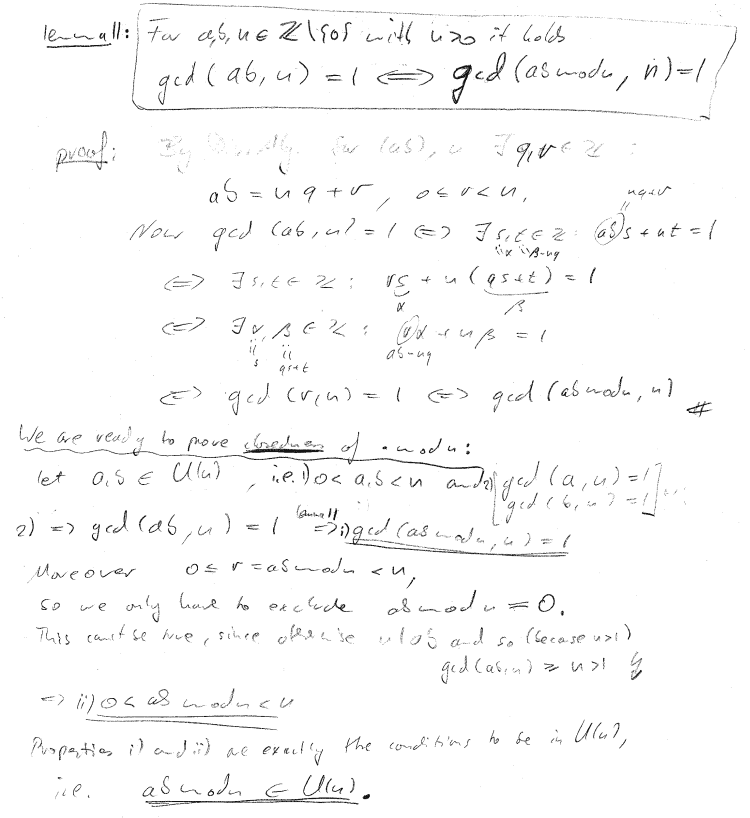 lemma 11: For a,b,n ∈ ℤ\{0} with n>0 it holds
gcd(ab, n) = 1 ⟺ gcd(ab mod n, n) = 1
proof: By for (ab), n ∃ q,r ∈ ℤ :
ab = nq + r, 0 ≤ r < n,
nq+r
Now gcd(ab, n) = 1 ⟺ ∃ s,t ∈ ℤ: (ab)s + nt = 1
α β-nq
⟺ ∃ s,t ∈ ℤ: rs + n(qs+t) = 1
α β
⟺ ∃ α, β ∈ ℤ: rα + nβ = 1
s qs+t ab-nq
⟺ gcd(r,n) = 1 ⟺ gcd(ab mod n, n) #
We are ready to prove closedness of · mod n:
let a,b ∈ U(n), i.e. 1) 0 < a,b < n and 2) [gcd(a, n) = 1
gcd(b, n) = 1]
2) ⟹ gcd(ab, n) = 1 ⟹ i) gcd(ab mod n, n) = 1
Moreover 0 ≤ r = ab mod n < n,
so we only have to exclude ab mod n = 0.
This can't be true, since otherwise n|ab and so (because n>1)
gcd(ab,n) ≥ n > 1 ↯
⟹ ii) 0 < ab mod n < n
Properties i) and ii) are exactly the conditions to be in U(n),
i.e. ab mod n ∈ U(n).